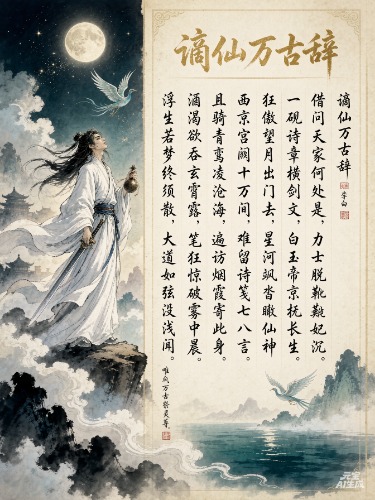 谪仙万古辞
谪仙万古辞
李白
借问天家何处是，力士脱靴皰妃沉。
一砚诗章横剑文，白玉帝京抚长生。
狂傲望月出门去，星河飒沓瞰仙神
西京宫阙十万间，难留诗笺七八言。
且骑青鸾凌沧海，遍访烟霞寄此身。
酒渴欲吞玄霄露，笔狂惊破雾中晨。
浮生若梦终须散，大道如弦没浅闻。
元宝
AI生成